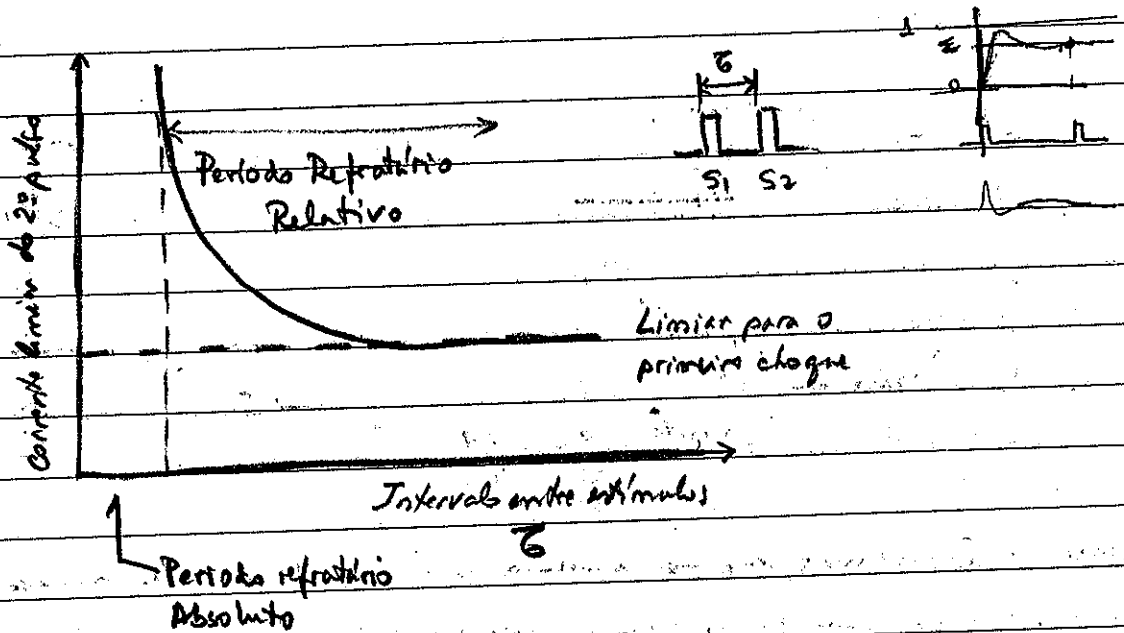 Corrente limiar do 2º pulso
Período Refratário
Relativo
τ
S1 S2
1
Σ
0
Limiar para o
primeiro choque
Intervalo entre estímulos
τ
Período refratário
Absoluto